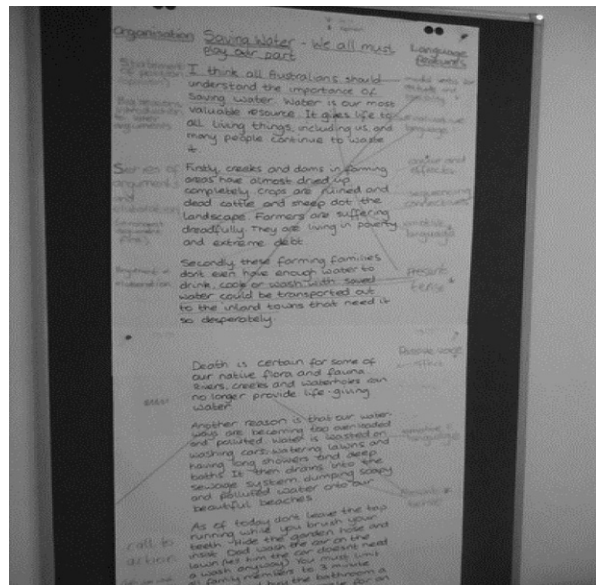 Organisation
Saving Water - We all must
play our part
Language
features
Statement
of position
I think all Australians should
understand the importance of
saving water. Water is our most
valuable resource. It gives life to
all living things, including us and
many people continue to waste
it.
evaluative
language
Series of
arguments
and
elaboration
Firstly, creeks and dams in farming
areas have almost dried up
completely. Crops are ruined and
dead cattle and sheep dot the
landscape. Farmers are suffering
dreadfully. They are living in poverty
and extreme debt
effects
sequencing
connectives
emotive
language
Secondly these farming families
don't even have enough water to
drink, cook or wash with saved
water could be transported out
to the inland towns that need it
so desperately.
Present
tense
Death is certain for some of
our native flora and fauna.
Rivers, creeks and waterholes can
no longer provide life-giving
water.
Passive voice
Another reason is that our water
ways are becoming too overloaded
and polluted. Water is wasted on
washing cars, watering lawns and
having long showers and deep
baths. It then drains into the
sewage system, dumping soapy
and polluted water onto our
beautiful beaches
language
As of today don't leave the tap
running while you brush your
teeth. Hide the garden hose and
insist Dad wash the car on the
lawn (tell him the car doesn't need
a wash anyway) You must limit
all family members to 3 minute
call to
action